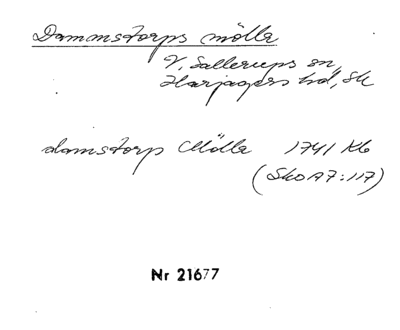 Dammstorps mölla
V. Sallerups sn,
Harjagers hd, Sk
damstorp Mölla 1741 Kb
(Sko A7:117)
Nr 21677